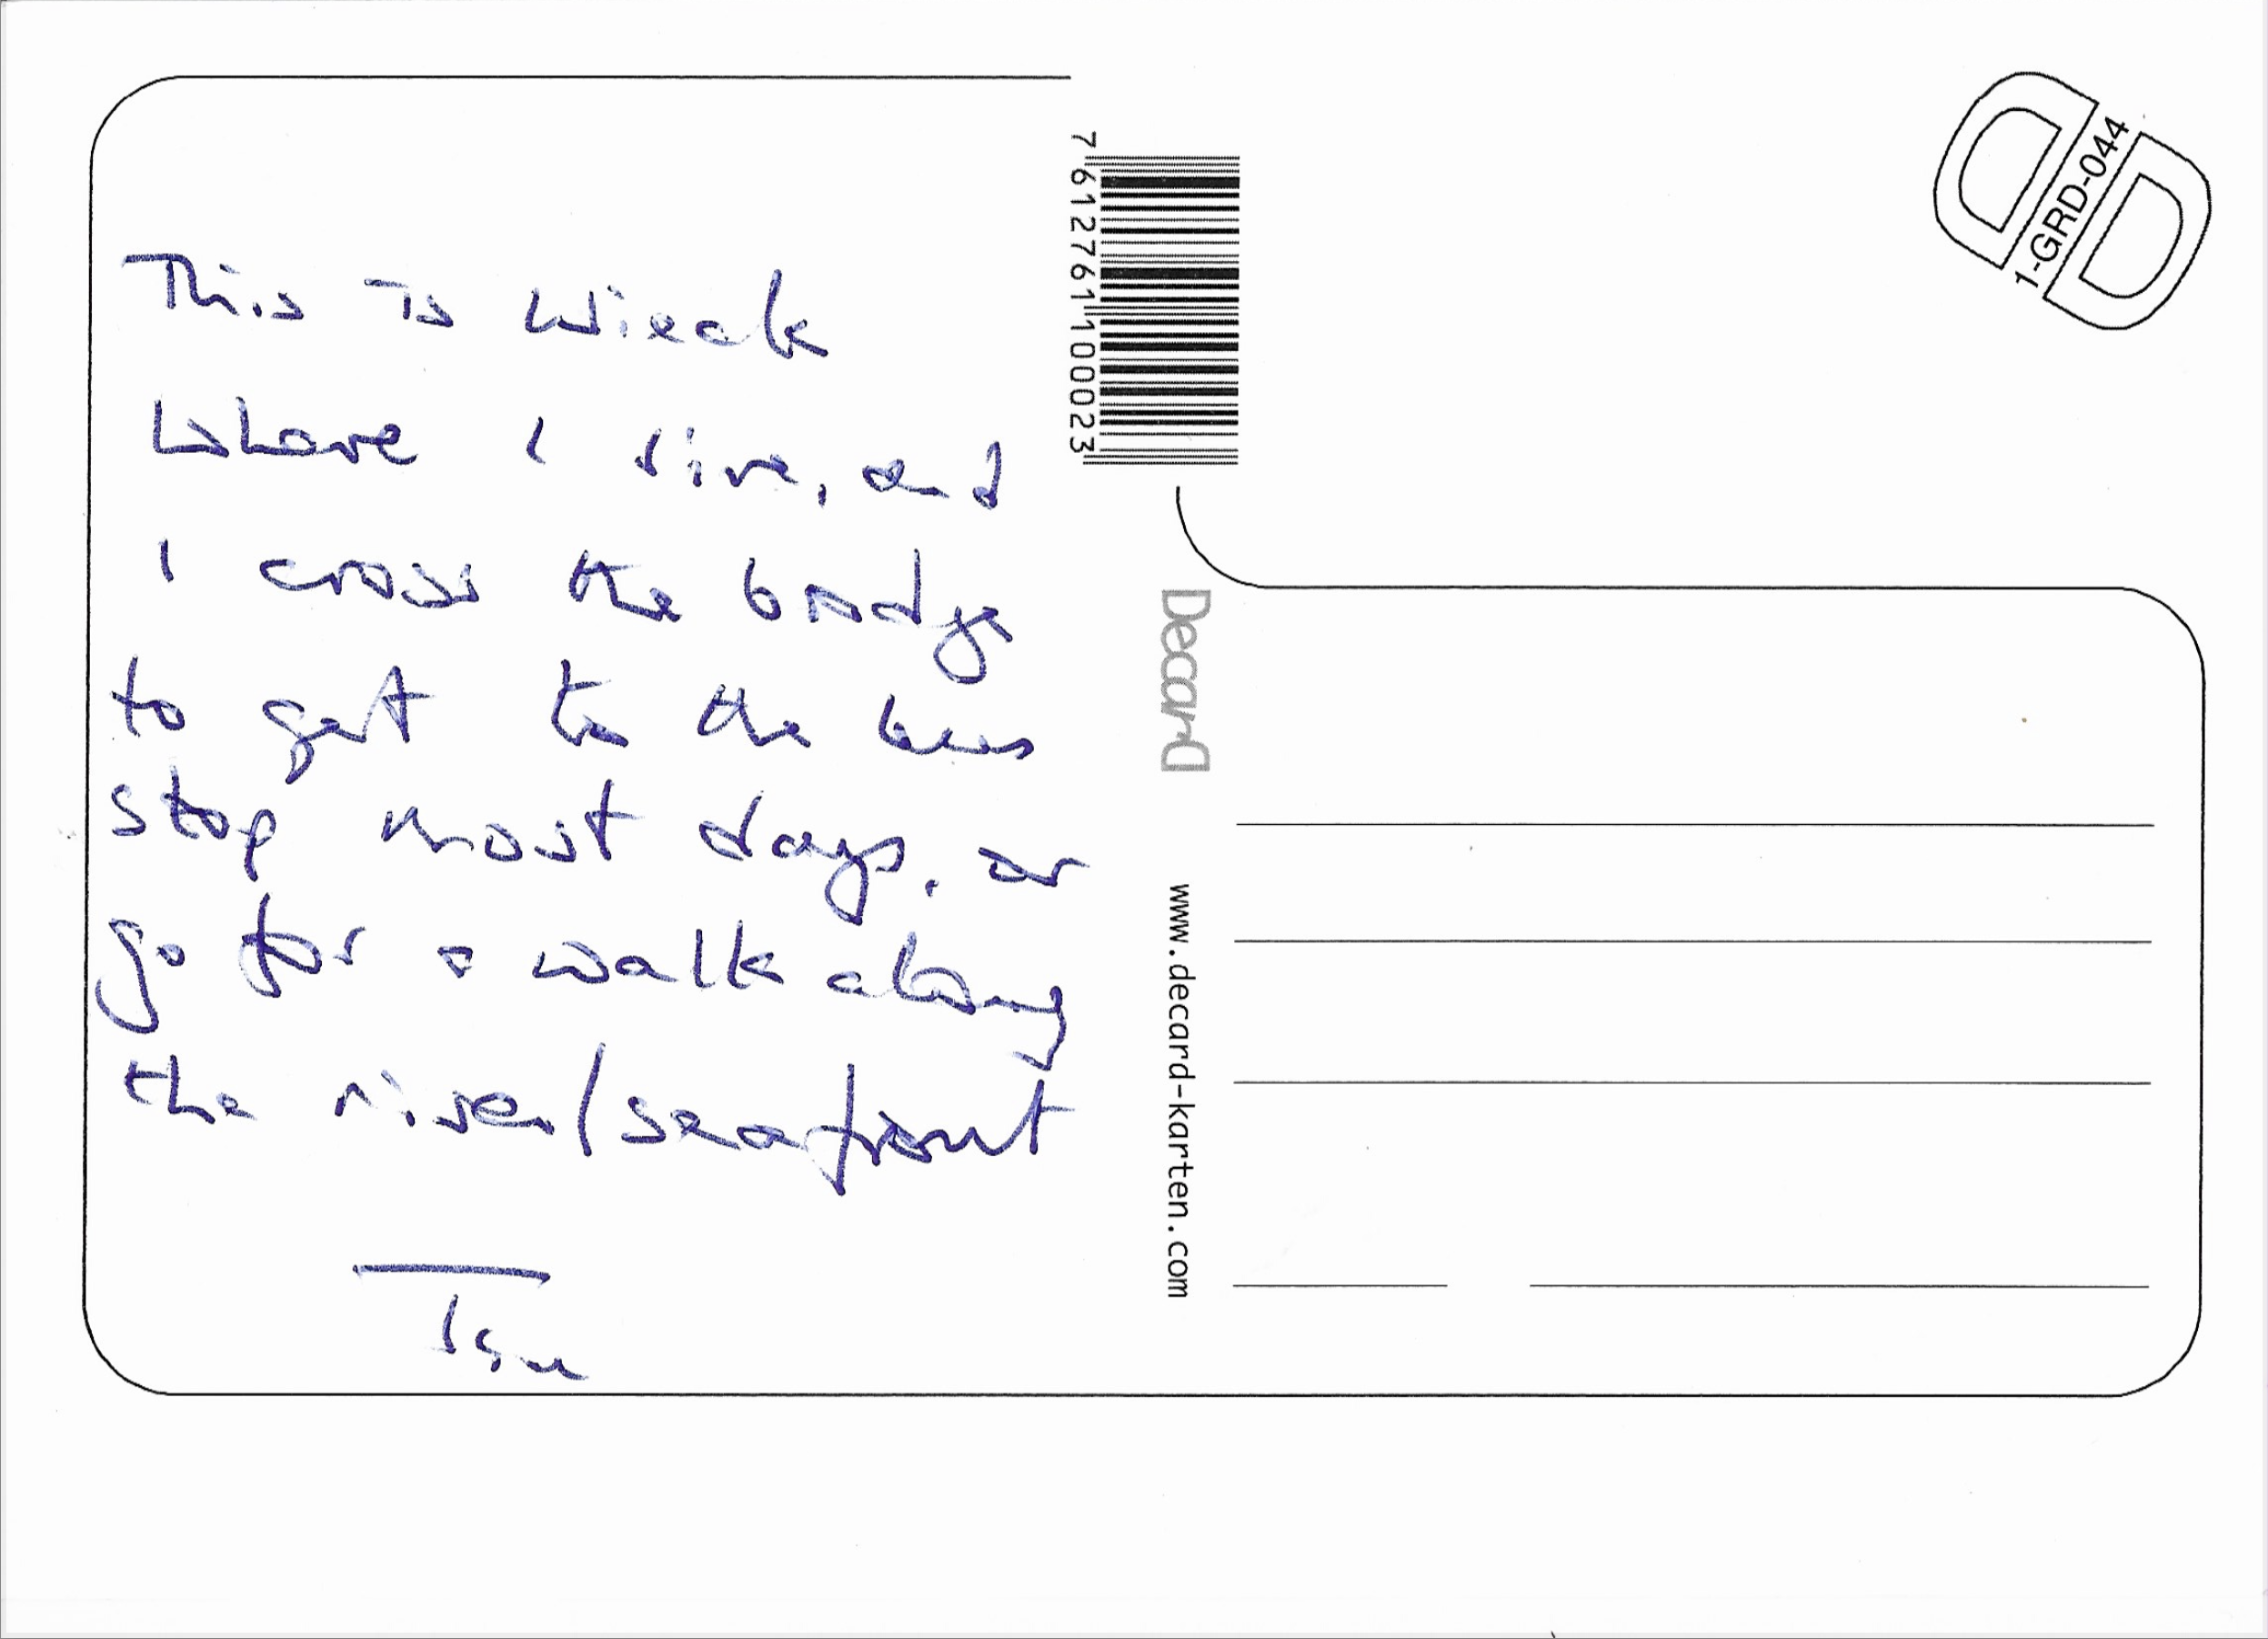 This is Wieck
where I live, and
I cross the bridge
to get to the bus
stop most days, or
go for a walk along
the river/seafront
7 612761 100023
1-GRD-044
Decard
www.decard-karten.com